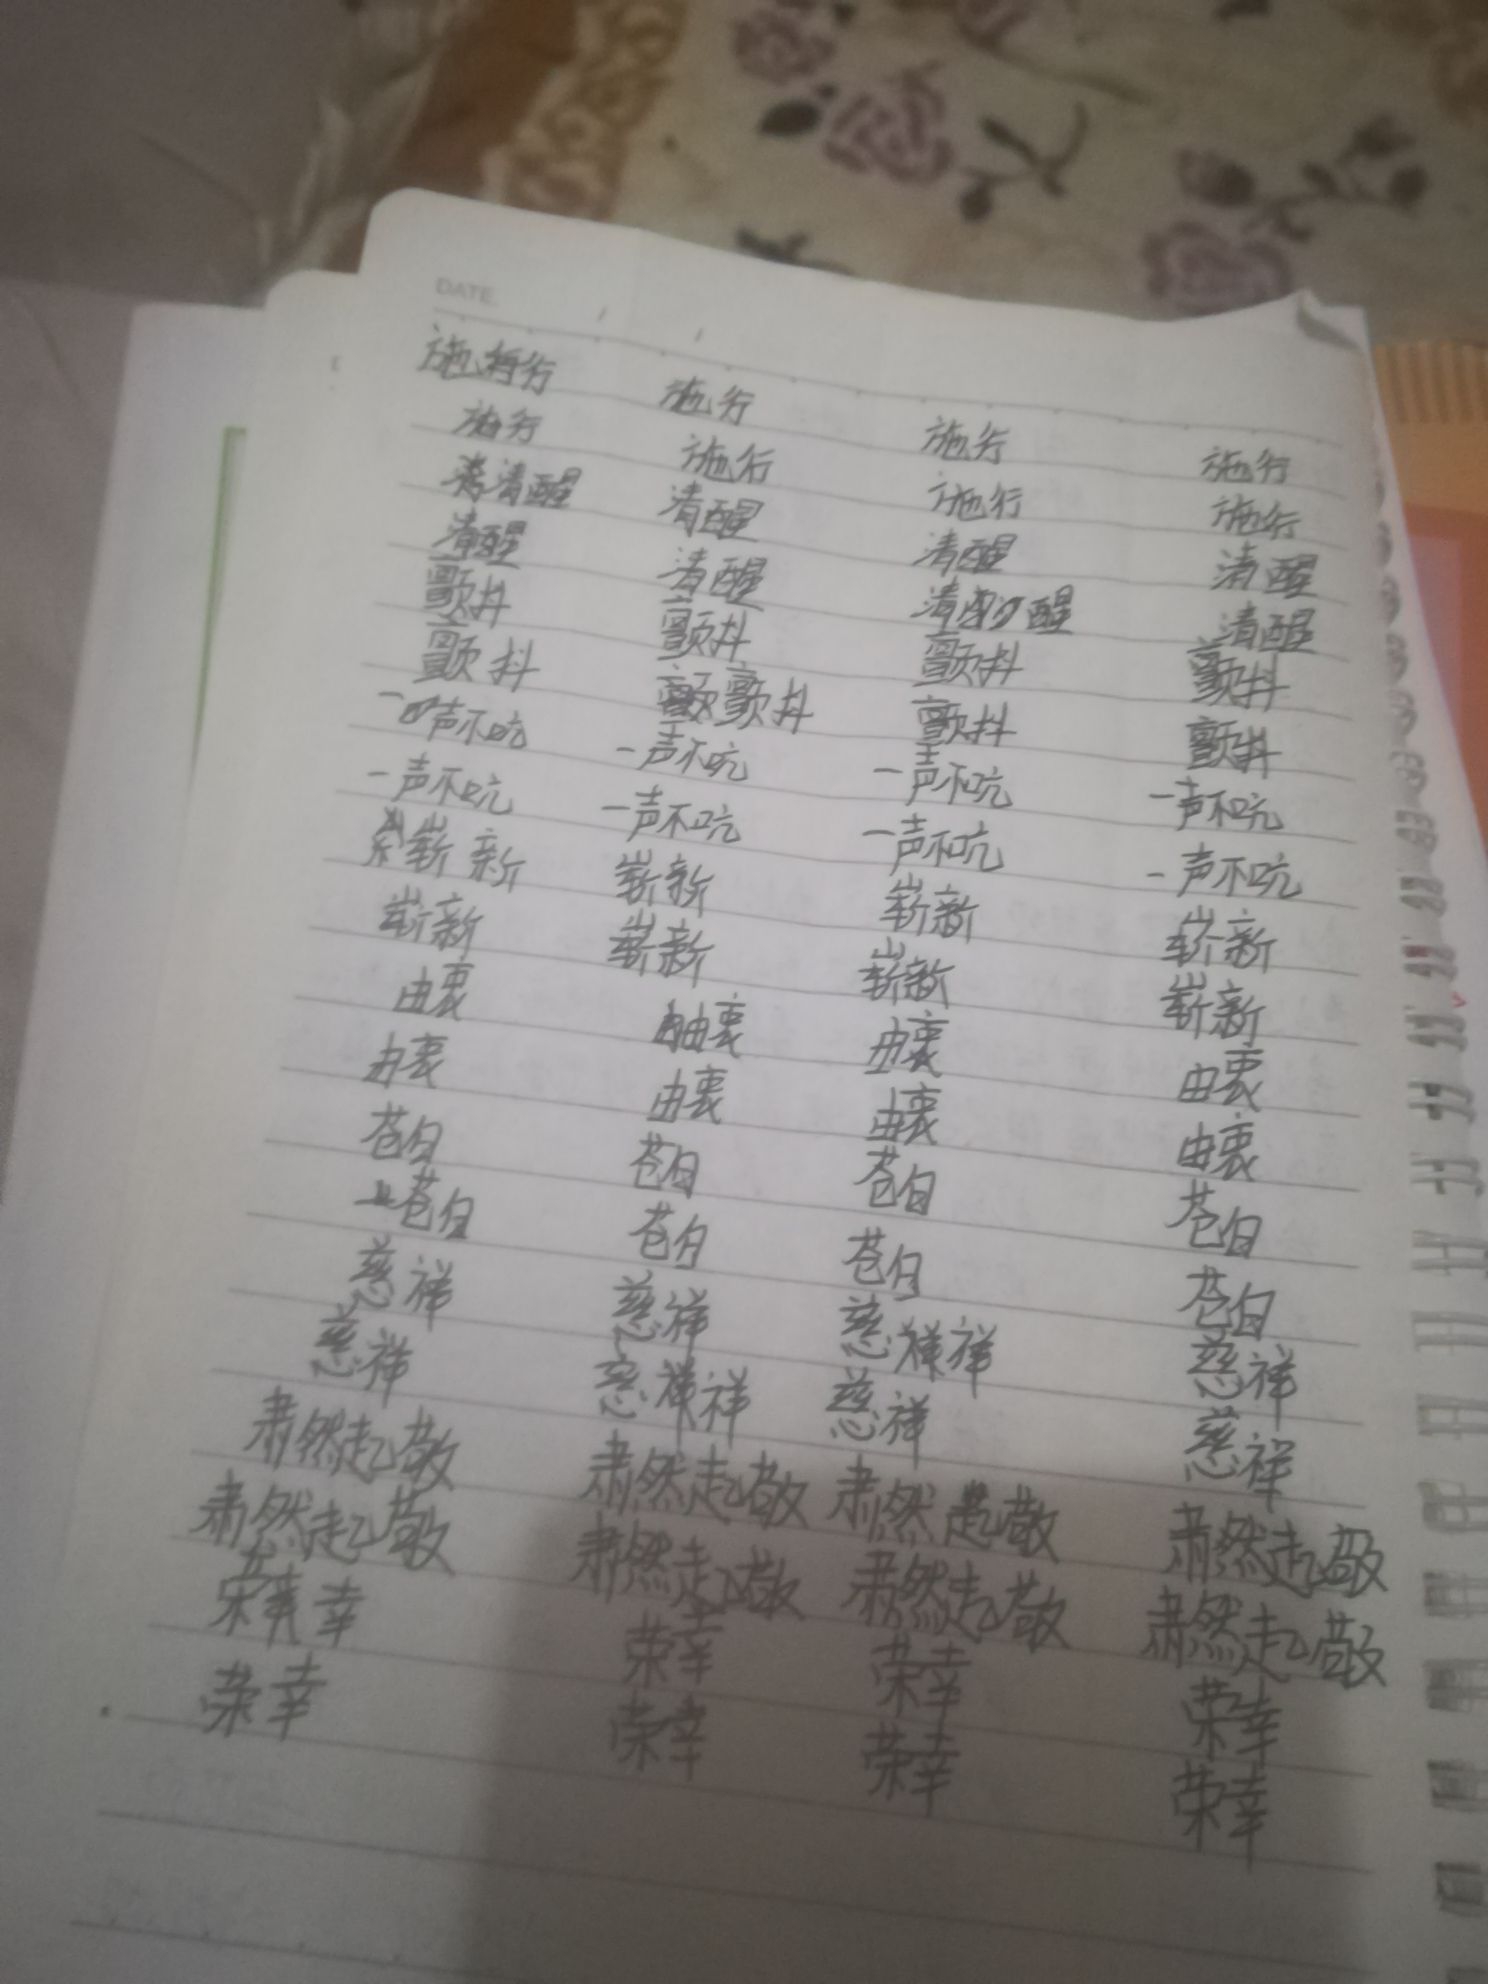 DATE. / /
施行 施行 施行 施行
施行 施行 施行 施行
清醒 清醒 清醒 清醒
清醒 清醒 清醒 清醒
颤抖 颤抖 颤抖 颤抖
颤抖 颤抖 颤抖 颤抖
一声不吭 一声不吭 一声不吭 一声不吭
一声不吭 一声不吭 一声不吭 一声不吭
崭新 崭新 崭新 崭新
崭新 崭新 崭新 崭新
由衷 由衷 由衷 由衷
由衷 由衷 由衷 由衷
苍白 苍白 苍白 苍白
苍白 苍白 苍白 苍白
慈祥 慈祥 慈祥 慈祥
慈祥 慈祥 慈祥 慈祥
肃然起敬 肃然起敬 肃然起敬 肃然起敬
肃然起敬 肃然起敬 肃然起敬 肃然起敬
荣幸 荣幸 荣幸 荣幸
荣幸 荣幸 荣幸 荣幸